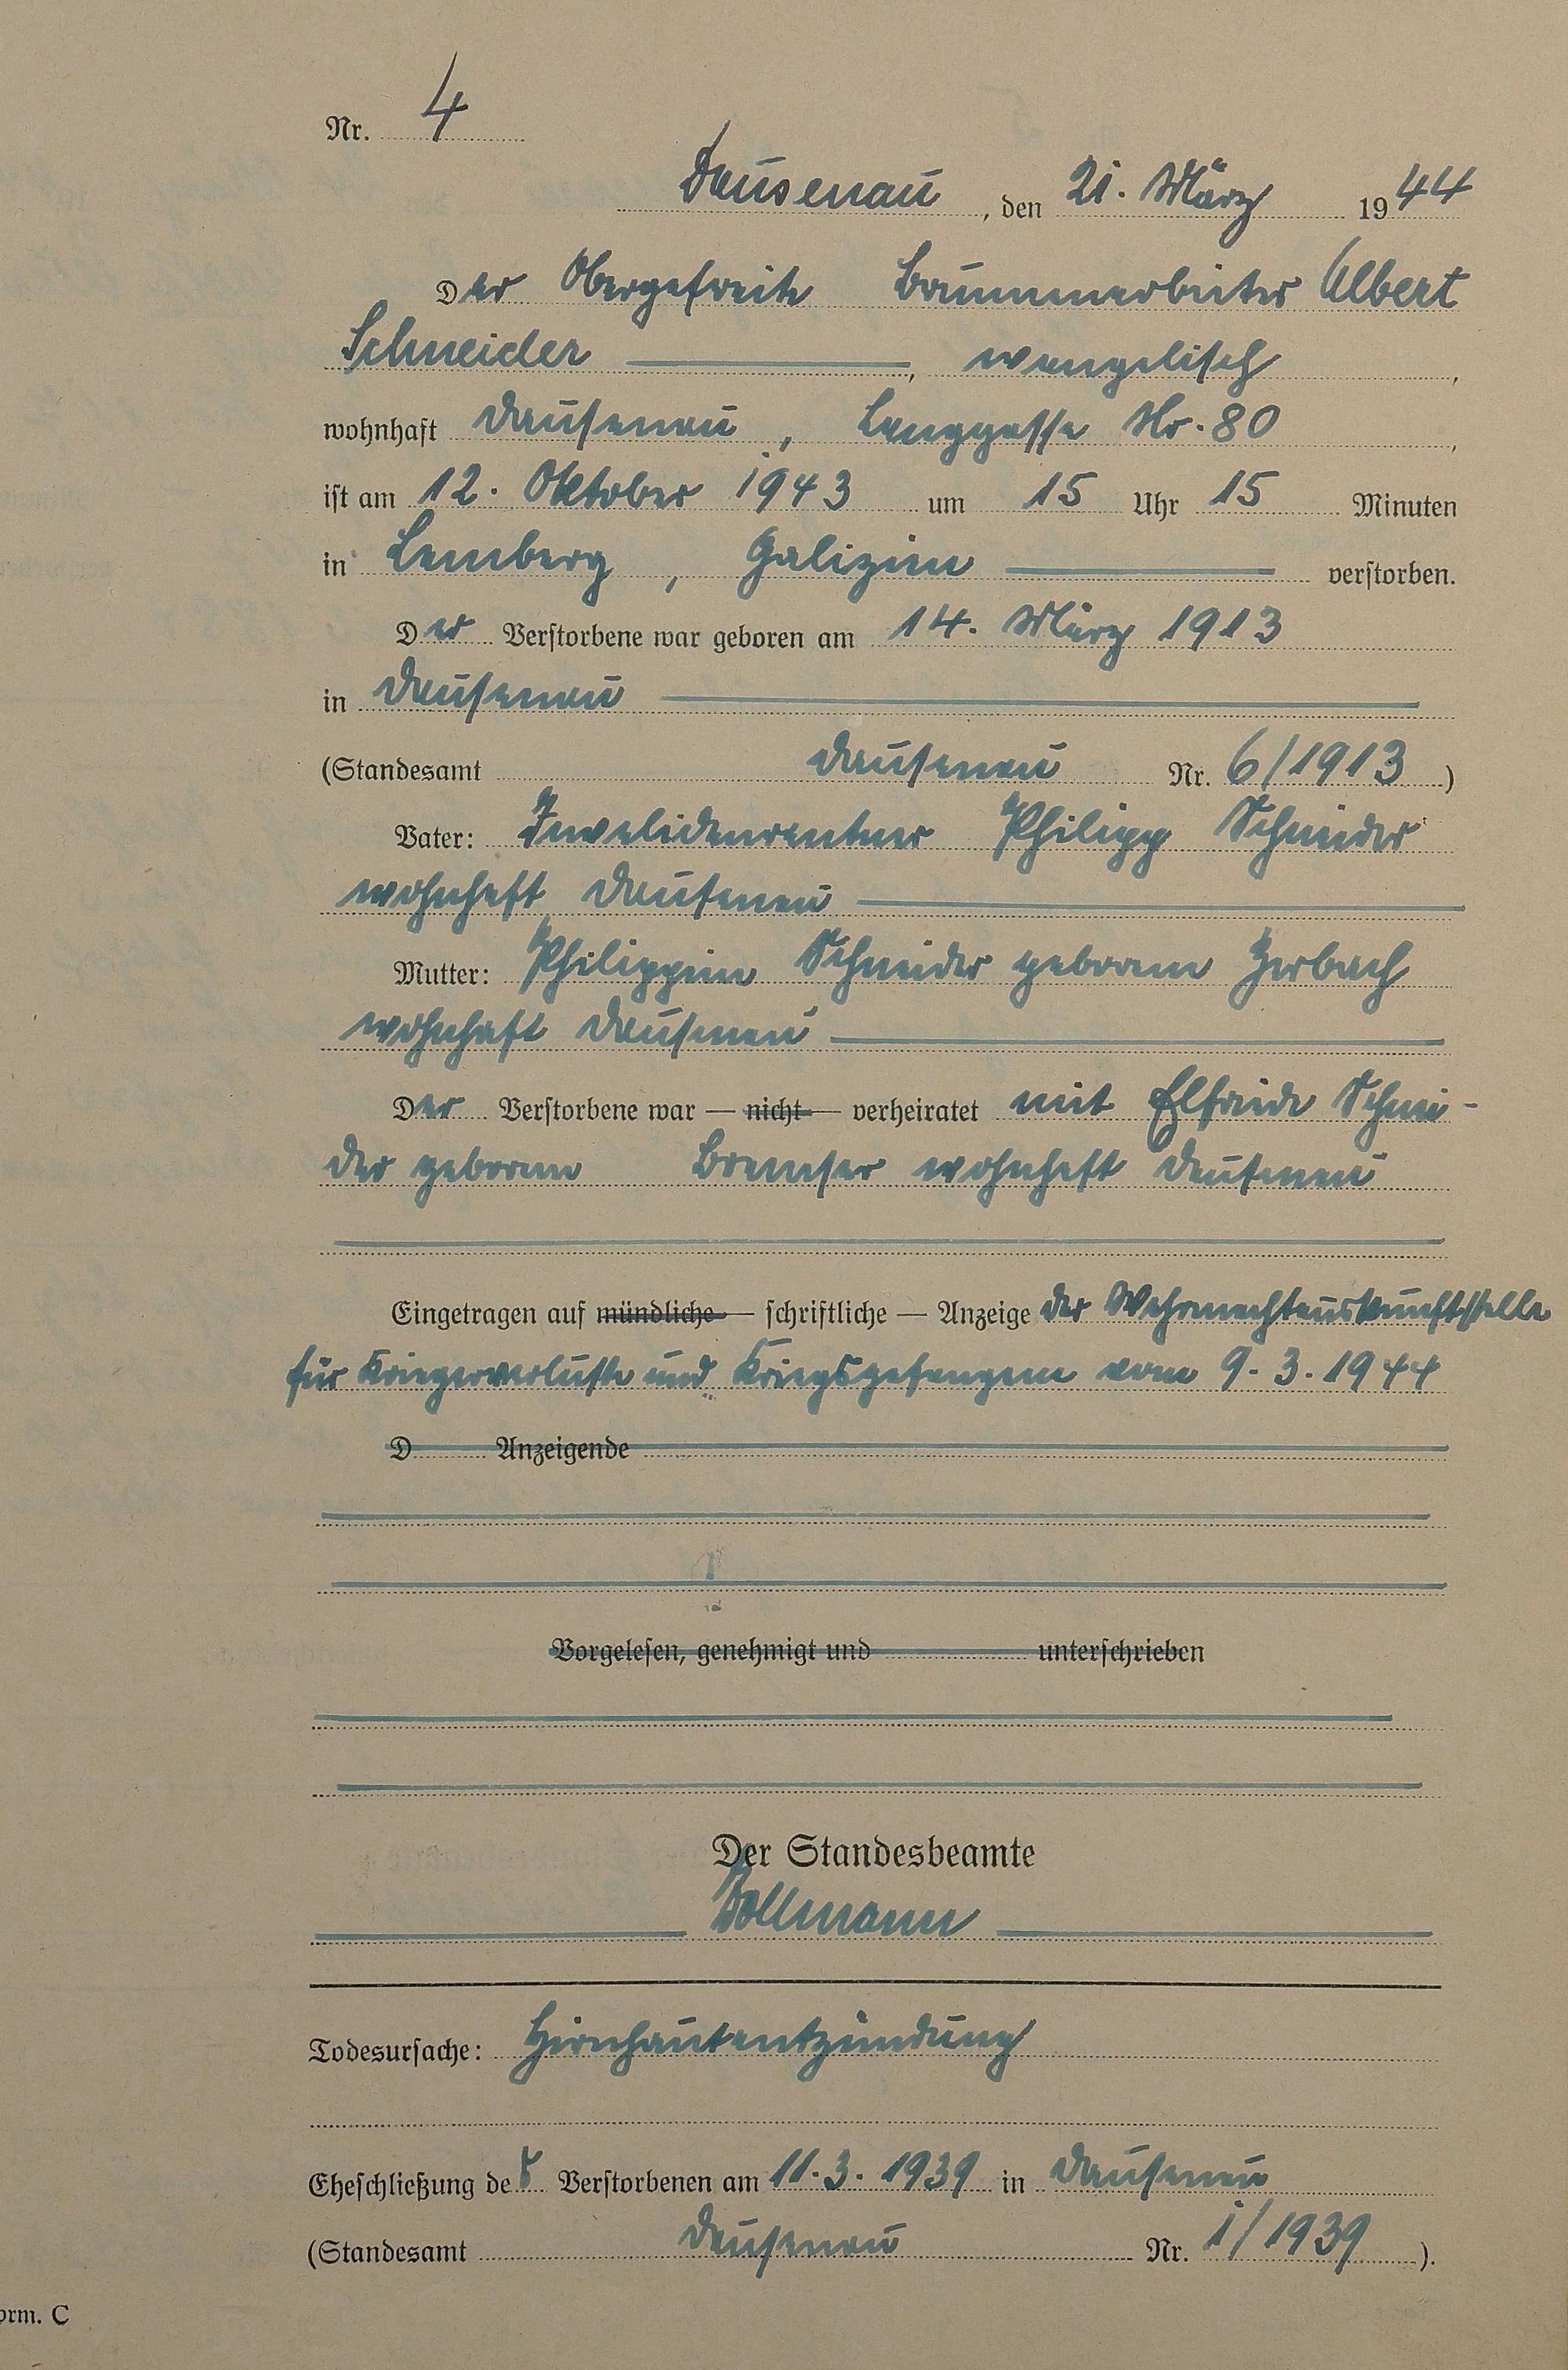 Nr. 4
Dausenau, den 21. März 1944
Der Obergefreite Brunnenarbeiter Albert
Schneider, evangelisch,
wohnhaft Dausenau, Langgasse Nr. 80,
ist am 12. Oktober 1943 um 15 Uhr 15 Minuten
in Lemberg, Galizien verstorben.
Der Verstorbene war geboren am 14. März 1913
in Dausenau
(Standesamt Dausenau Nr. 6/1913)
Vater: Invalidenrentner Philipp Schneider
wohnhaft Dausenau
Mutter: Philippine Schneider geborene Zerbach
wohnhaft Dausenau
Der Verstorbene war — nicht — verheiratet mit Elfriede Schnei-
der geborene Bremser wohnhaft Dausenau
Eingetragen auf mündliche — schriftliche — Anzeige der Wehrmachtauskunftstelle
für Kriegerverluste und Kriegsgefangene vom 9. 3. 1944
D Anzeigende
Vorgelesen, genehmigt und unterschrieben
Der Standesbeamte
Bollmann
Todesursache: Hirnhautentzündung
Eheschließung des Verstorbenen am 11. 3. 1939 in Dausenau
(Standesamt Dausenau Nr. 1/1939).
orm. C